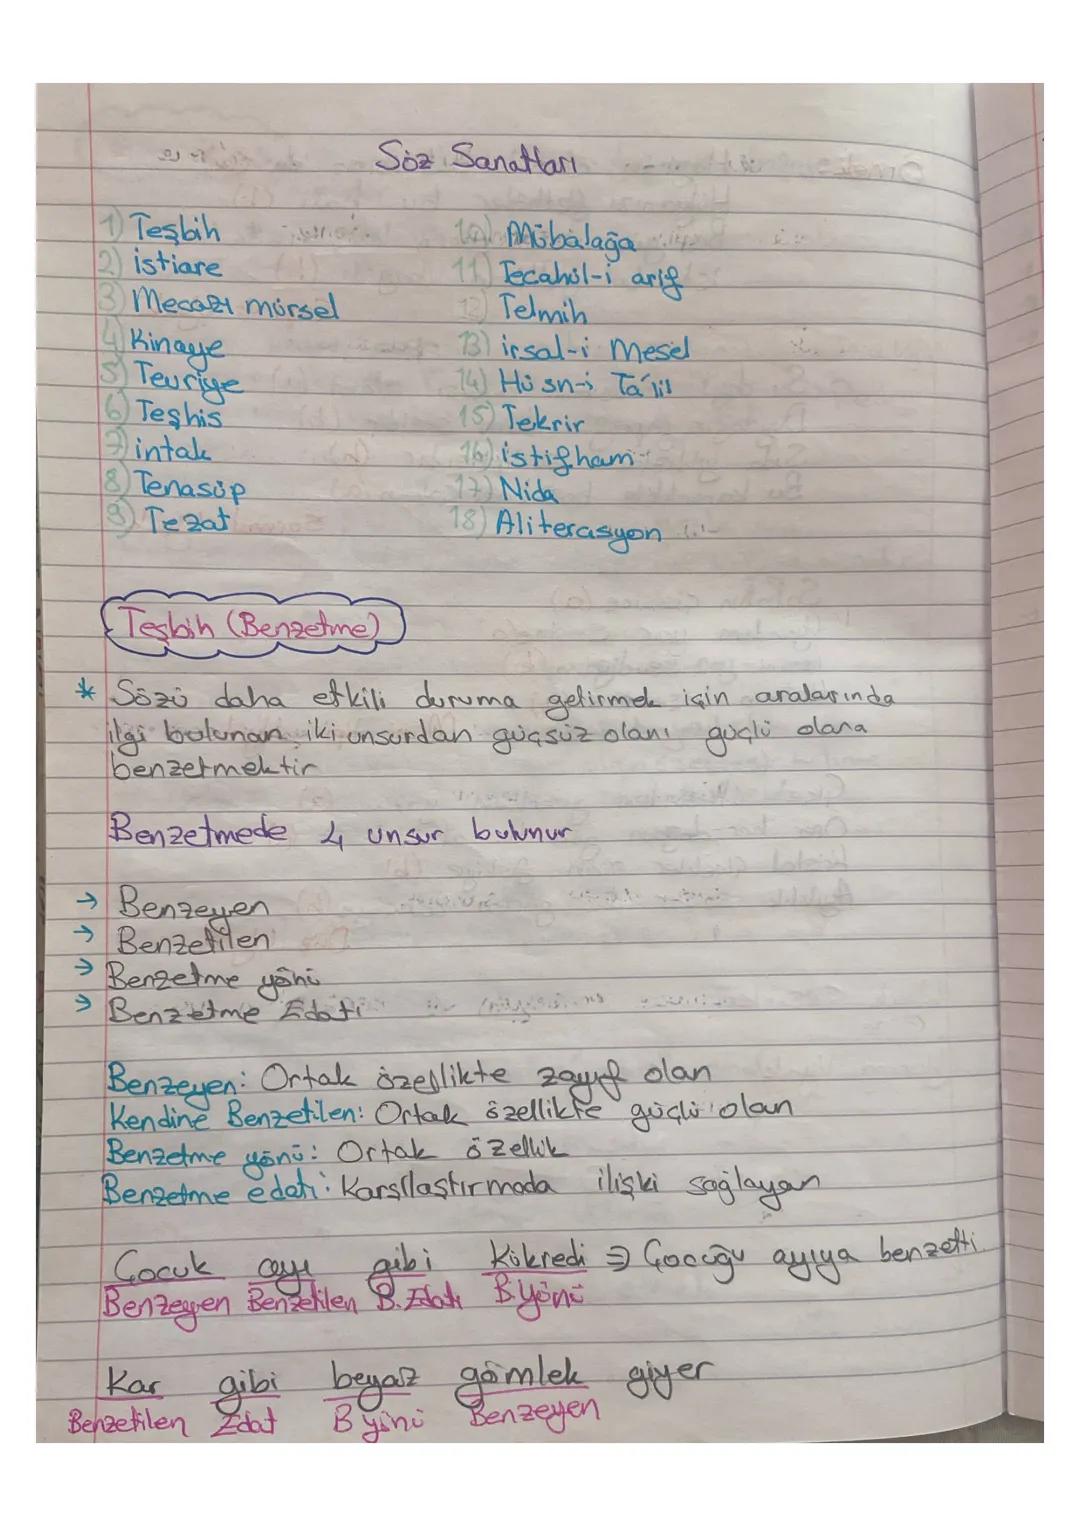 Söz Sanatları
1) Teşbih
2) istiare
3) Mecazı mürsel
4) Kinaye
5) Tevriye
6) Teşhis
7) intak
8) Tenasüp
9) Tezat
10) Mübalağa
11) Tecahül-i arif
12) Telmih
13) irsal-i Mesel
14) Hüsn-i Ta'lil
15) Tekrir
16) istifham
17) Nida
18) Aliterasyon
Teşbih (Benzetme)
* Sözü daha etkili duruma getirmek için aralarında
ilgi bulunan iki unsurdan güçsüz olanı güçlü olana
benzetmektir
Benzetmede 4 unsur bulunur
→ Benzeyen
→ Benzetilen
→ Benzetme yönü
→ Benzetme Edatı
Benzeyen: Ortak özellikte zayıf olan
Kendine Benzetilen: Ortak özellikte güçlü olan
Benzetme yönü: Ortak özellik
Benzetme edatı: Karşılaştırmada ilişki sağlayan
Çocuk ayı gibi Kükredi ⇒ Çocuğu ayıya benzetti
Benzeyen Benzetilen B. Edatı B.Yönü
Kar gibi beyaz gömlek giyer
Benzetilen Edat B yönü Benzeyen